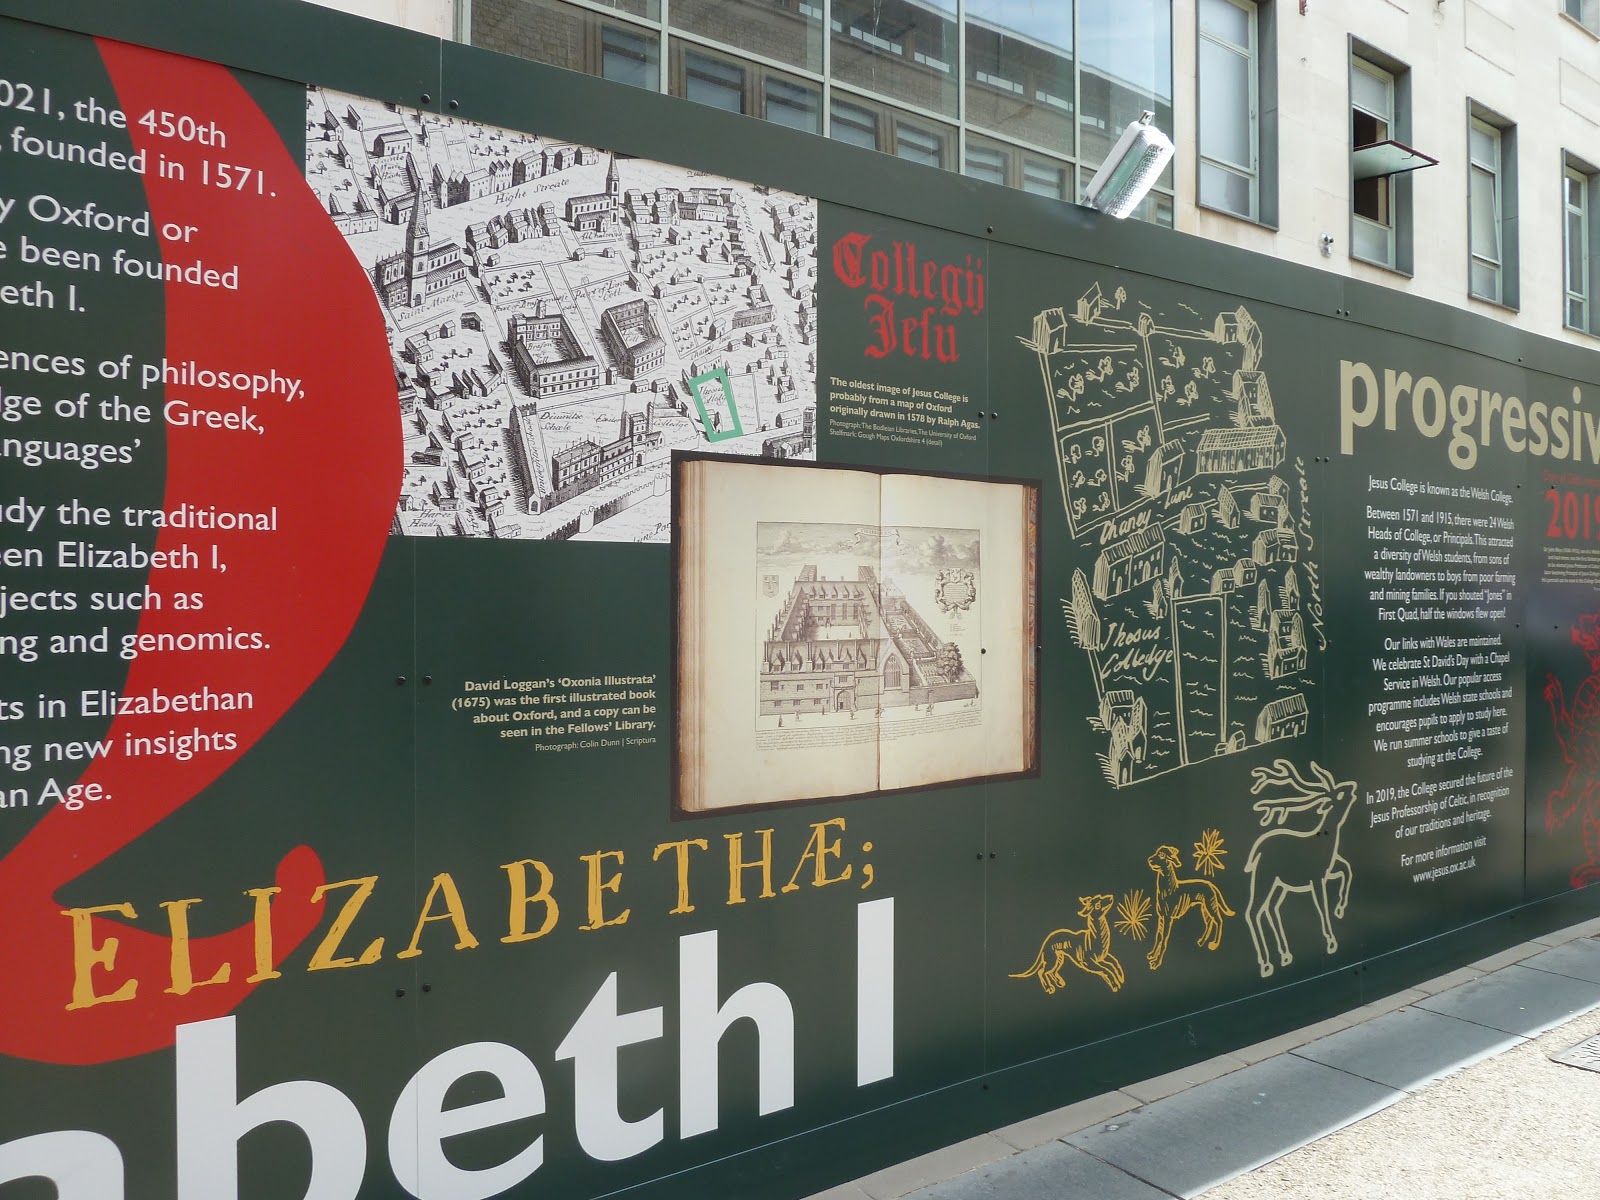 021, the 450th
, founded in 1571.
y Oxford or
e been founded
eth I.
ences of philosophy,
dge of the Greek,
anguages’
udy the traditional
een Elizabeth I,
jects such as
ng and genomics.
ts in Elizabethan
ng new insights
an Age.
ELIZABETHÆ;
abeth I
High Streate
Collegij
Jesu
The oldest image of Jesus College is
probably from a map of Oxford
originally drawn in 1578 by Ralph Agas.
Photograph: The Bodleian Libraries, The University of Oxford
Shelfmark: Gough Maps Oxfordshire 4 (detail)
David Loggan's ‘Oxonia Illustrata’
(1675) was the first illustrated book
about Oxford, and a copy can be
seen in the Fellows' Library.
Photograph: Colin Dunn | Scriptura
Cheney Lane
North Streate
Jhesus
Colledge
progressiv
Jesus College is known as the Welsh College.
Between 1571 and 1915, there were 24 Welsh
Heads of College, or Principals. This attracted
a diversity of Welsh students, from sons of
wealthy landowners to boys from poor farming
and mining families. If you shouted “Jones” in
First Quad, half the windows flew open!
Our links with Wales are maintained.
We celebrate St David's Day with a Chapel
Service in Welsh. Our popular access
programme includes Welsh state schools and
encourages pupils to apply to study here.
We run summer schools to give a taste of
studying at the College.
In 2019, the College secured the future of the
Jesus Professorship of Celtic, in recognition
of our traditions and heritage.
For more information visit
www.jesus.ox.ac.uk
2019